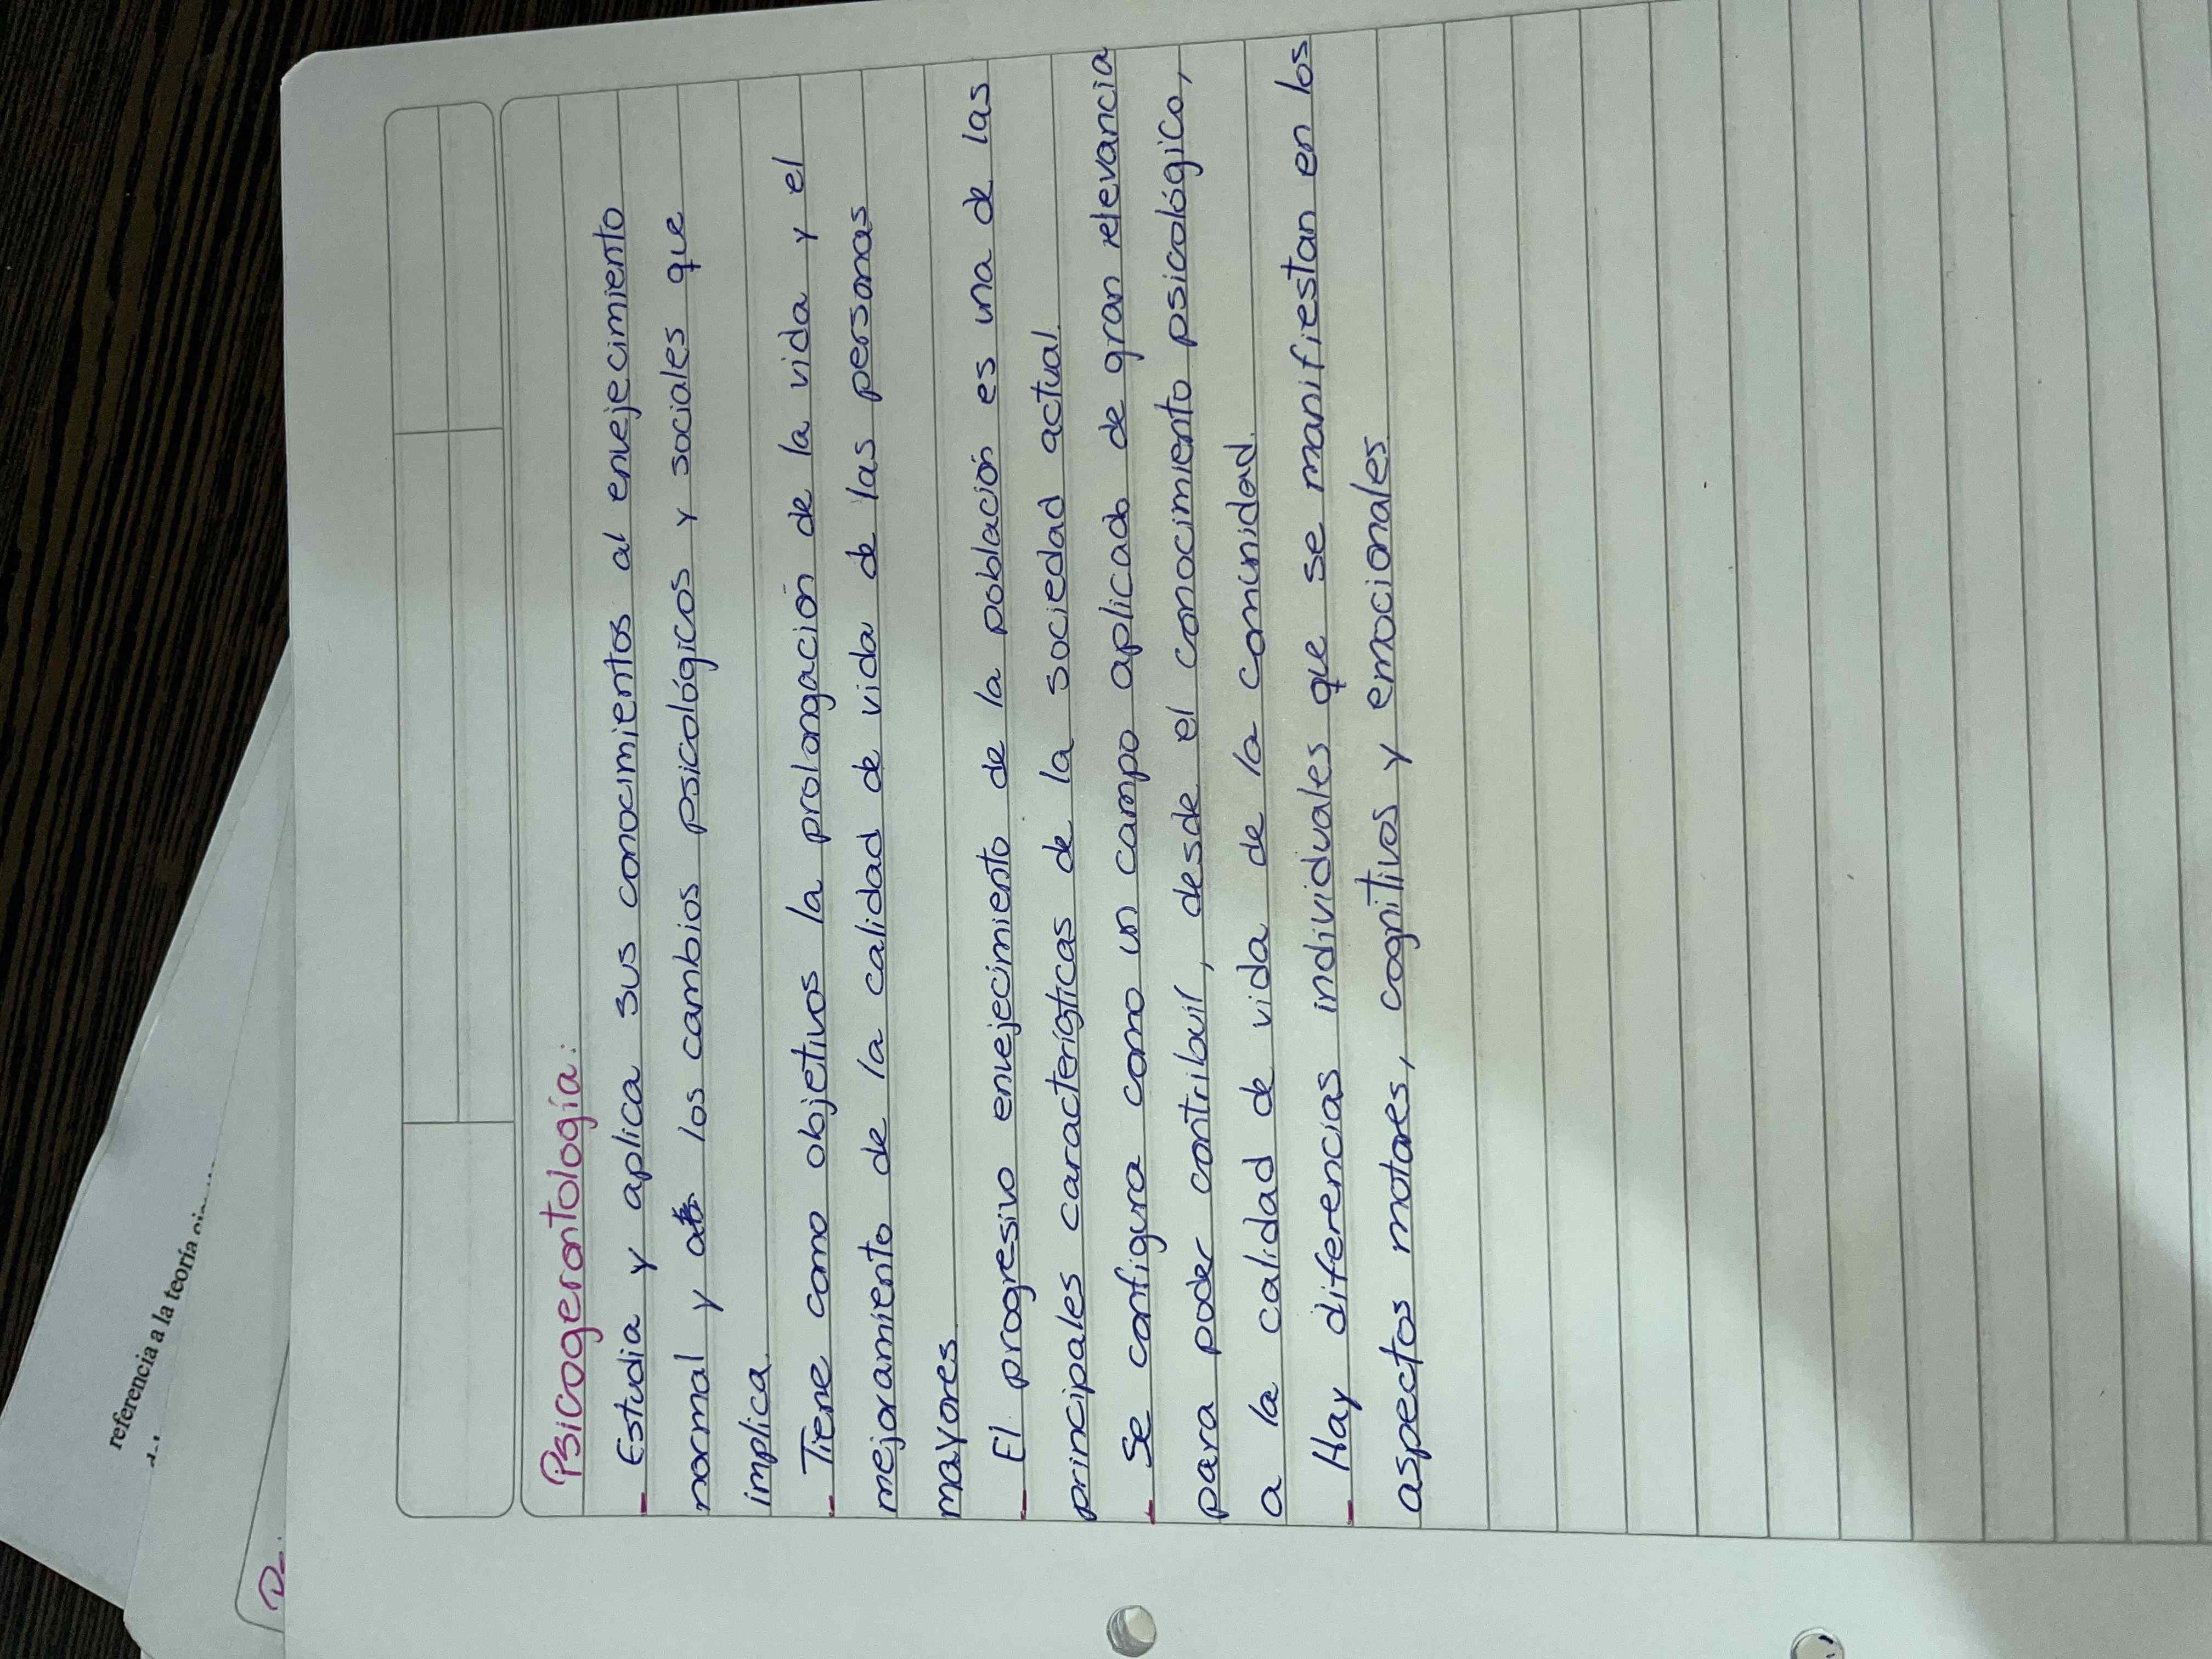 referencia a la teoría
Psicogerontología:
- Estudia y aplica sus conocimientos al envejecimiento
normal y los cambios psicológicos y sociales que
implica.
- Tiene como objetivos la prolongación de la vida y el
mejoramiento de la calidad de vida de las personas
mayores.
- El progresivo envejecimiento de la población es una de las
principales características de la sociedad actual.
- Se configura como un campo aplicado de gran relevancia
para poder contribuir, desde el conocimiento psicológico,
a la calidad de vida de la comunidad.
- Hay diferencias individuales que se manifiestan en los
aspectos motores, cognitivos y emocionales